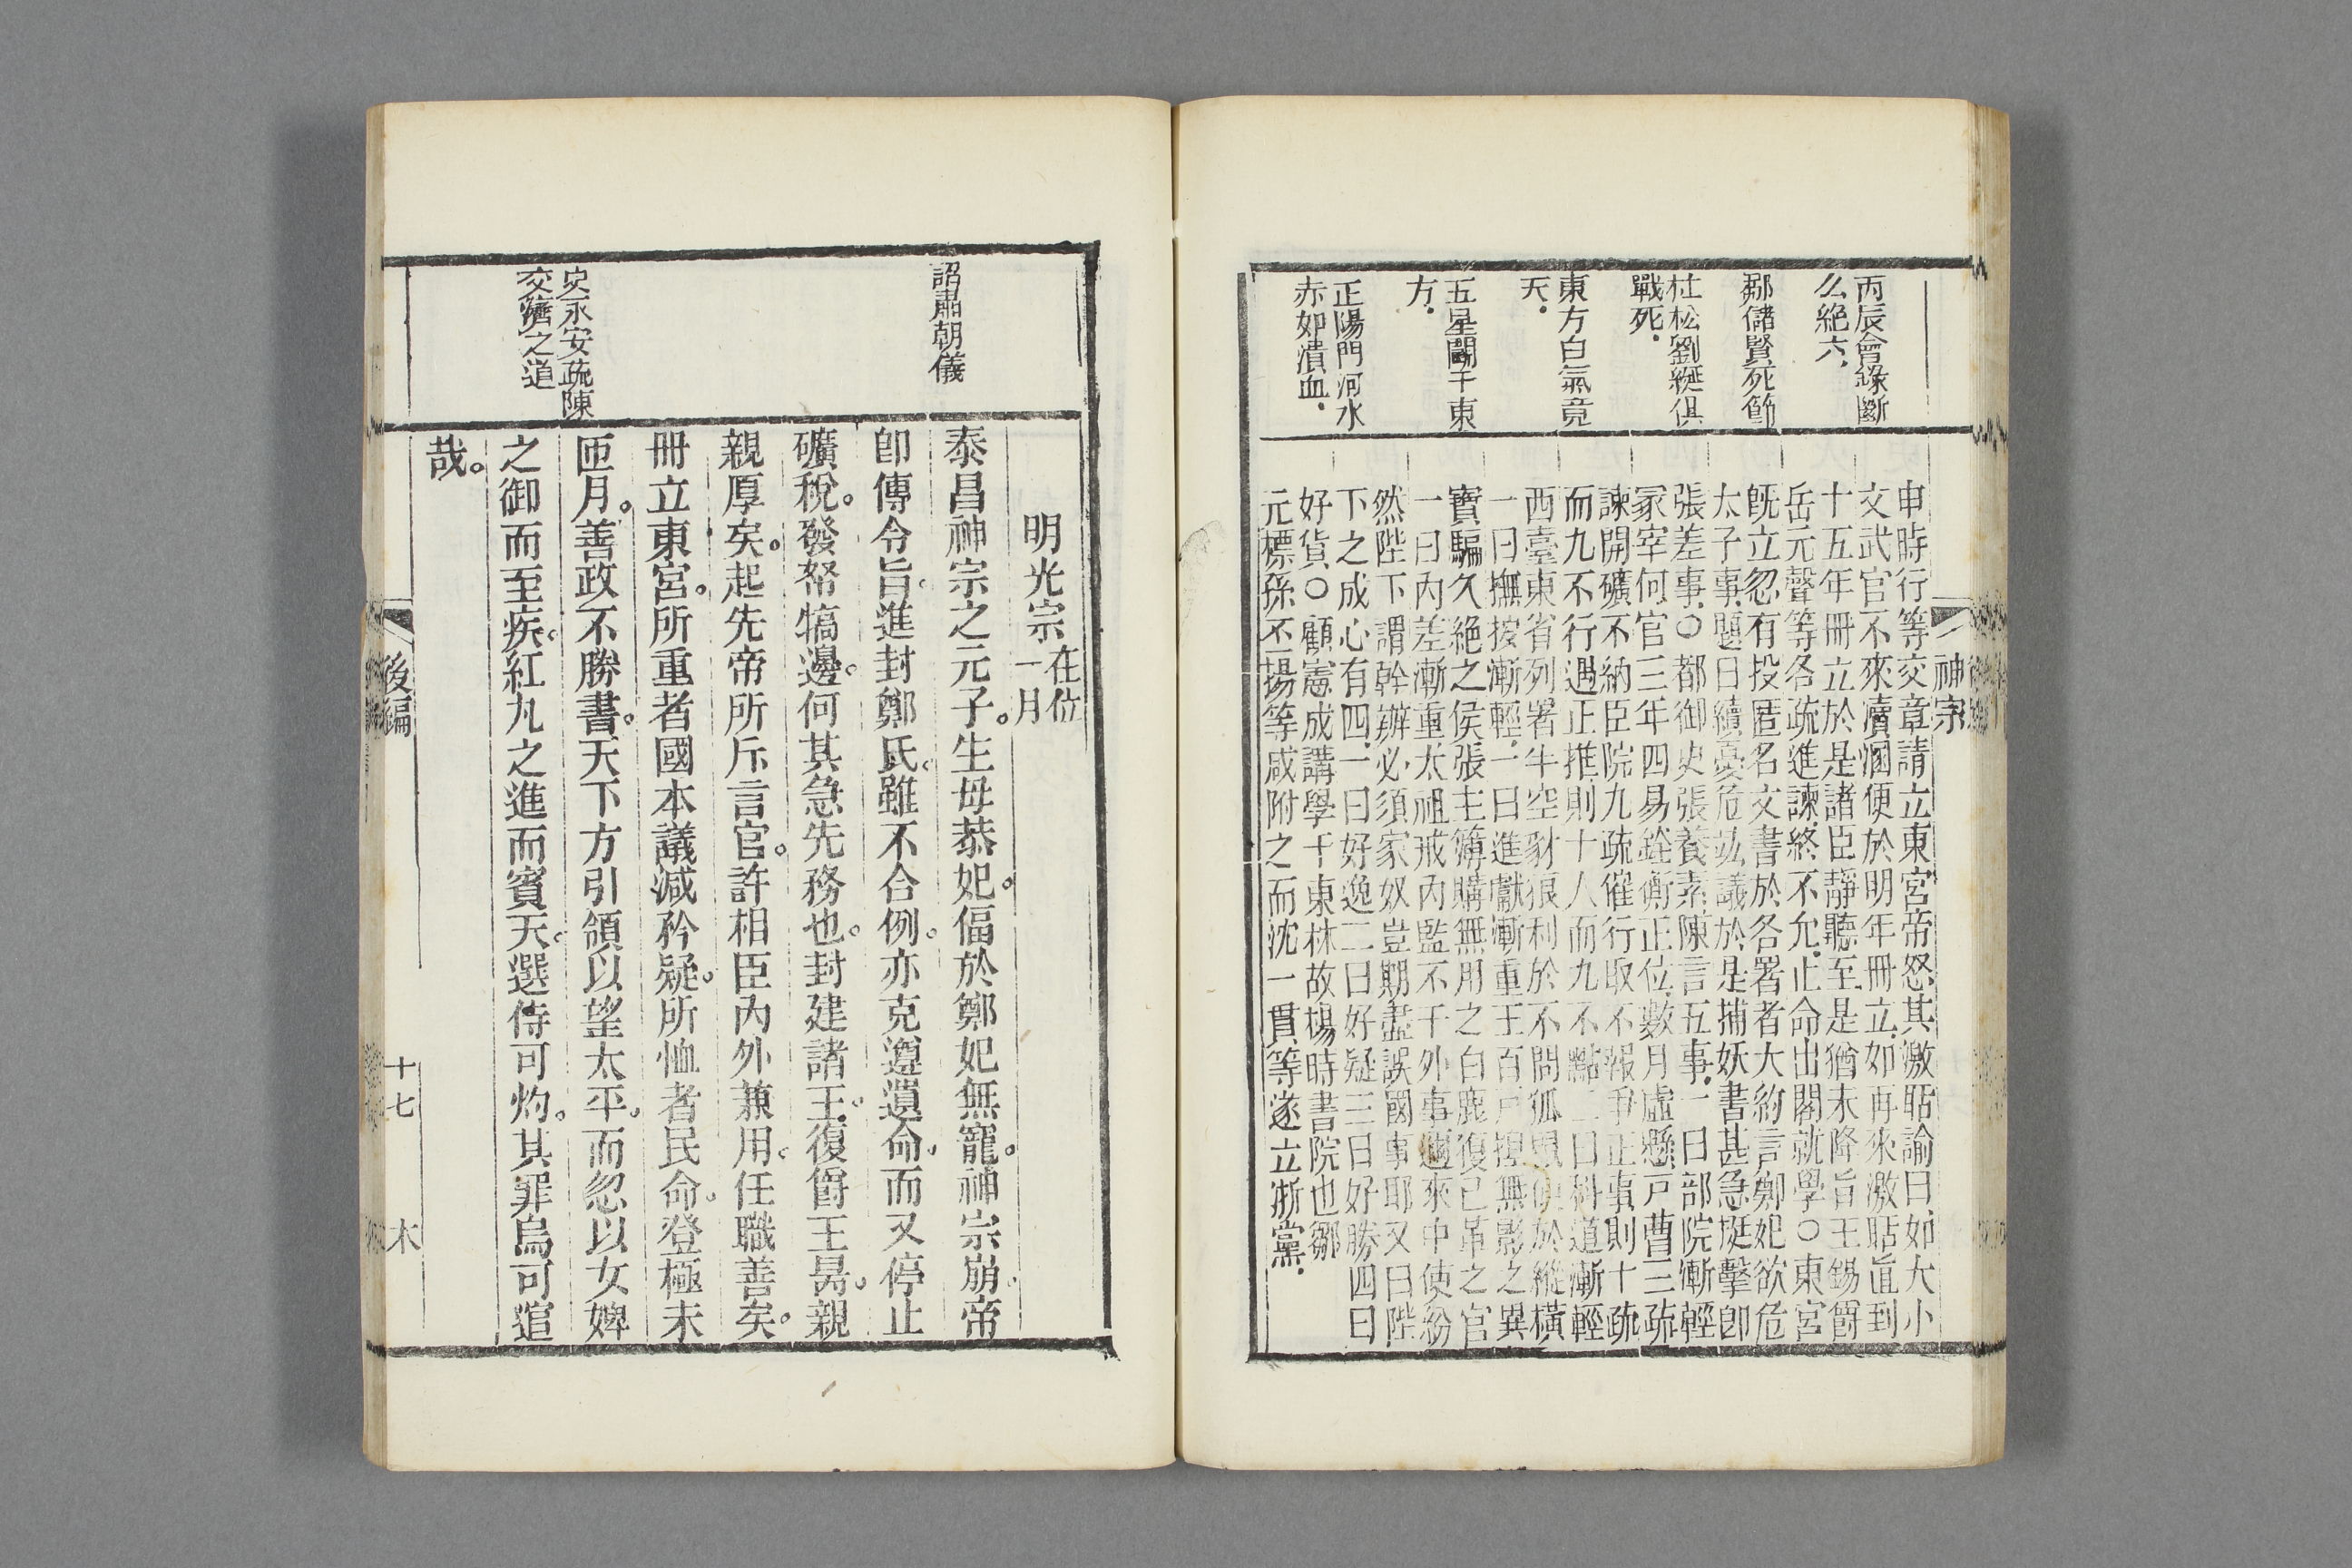 神宗
丙辰會錄斷
么絶六．
鄒儲賢死節
杜松劉綎俱
戰死．
東方白氣竟
天．
五星鬬于東
方．
正陽門河水
赤如潰血．
申時行等交章請立東宮帝怒其激聒諭曰如大小
文武官不來瀆溷便於明年冊立如再來激聒直到
十五年冊立於是諸臣靜聽至是猶未降旨王錫爵
岳元聲等各疏進諫終不允止命出閣就學○東宮
既立忽有投匿名文書於各署者大約言鄭妃欲危
太子事題曰續憂危竑議於是捕妖書甚急挺擊卽
張差事○都御史張養素陳言五事．一曰部院漸輕
冢宰何官三年四易銓衡正位數月虛懸戸曹三疏
諫開礦不納臣院九疏催行取不報爭正事則十疏
而九不行遇正推則十人而九不點二曰科道漸輕
西臺東省列署牛空豺狼利於不問狐鼠便於縱橫
一曰撫按漸輕．一曰進獻漸重王百戸揑無影之異
寶騙久絶之侯張主簿購無用之白鹿復已革之官
一曰內差漸重太祖戒內監不干外事邇來中使紛
然陛下謂幹辦必須家奴豈期盡誤國事耶又曰陛
下之成心有四．一曰好逸二曰好疑三曰好勝四曰
好貨○顧憲成講學于東林故楊時書院也鄒
元標孫丕揚等咸附之而沈一貫等遂立浙黨．
詔肅朝儀
史永安疏陳
交儕之道
明光宗在位
一月
泰昌神宗之元子。生母恭妃。偪於鄭妃無寵。神宗崩。帝
卽傳令旨。進封鄭氏。雖不合例。亦克遵遺命。而又停止
礦稅。發帑犒邊。何其急先務也。封建諸王。復爵王昺。親
親厚矣。起先帝所斥言官。許相臣內外兼用。任職善矣。
冊立東宮。所重者國本議減矜疑。所恤者民命。登極未
匝月。善政不勝書。天下方引領以望太平。而忽以女婢
之御而至疾。紅丸之進而賓天。選侍可灼。其罪烏可逭
哉。
後編
十七
木